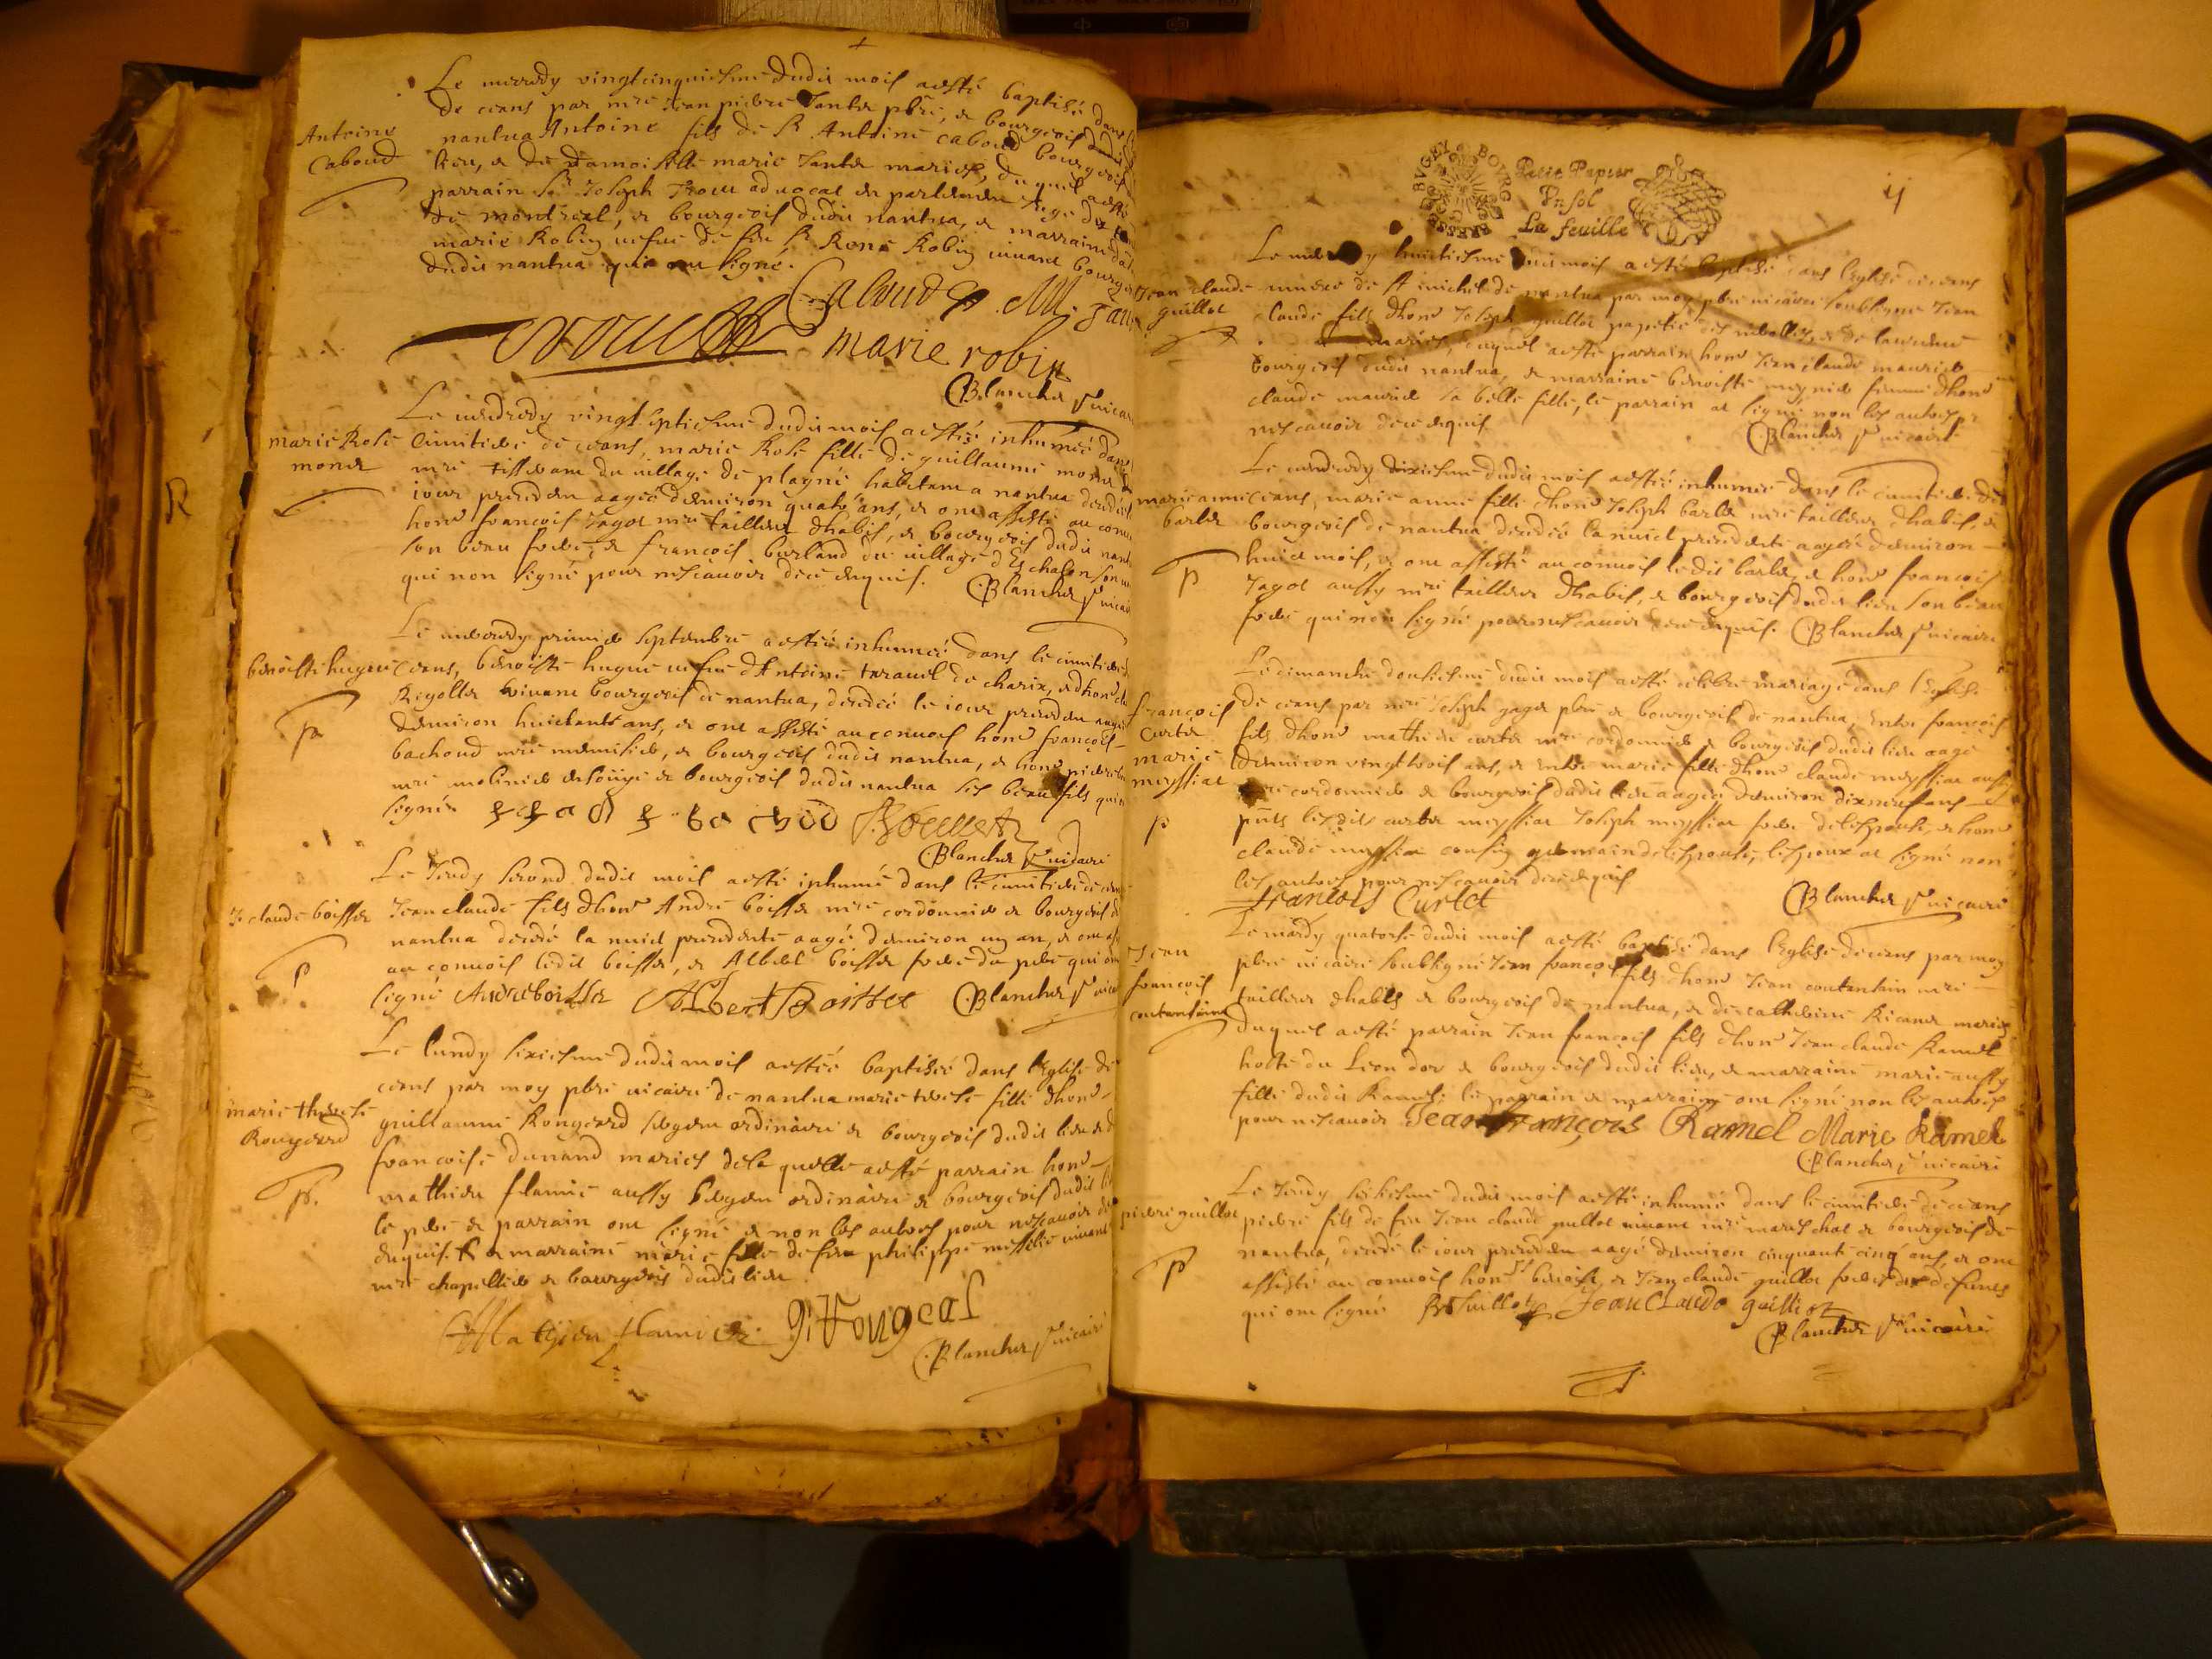 Le mecredy vingtcinquiesme dudit mois a esté baptisé dans
de ceans par mre Jean pierre Janter pbre, et bourgeois dudit
Antoine
Caboud
nantua Antoine fils de Sr Antoine caboud bourgeois
lieu, et de damoiselle marie Janter mariés, duquel a esté
parrain Sr Joseph advocat en parlement Juge
de montreal, et bourgeois dudit nantua, et marraine
marie Robin vefue de feu Sr René Robin vivant bourgeois
dudit nantua qui ont signé.
Caboud
marie robin
Blanchet vicaire
Le vendredy vingt septiesme dudit mois a estée inhumée dans
marie Rose
monet
cimitiere de ceans, marie Rose fille de guillaume monet
mre tisserant du village de plagne habitant a nantua decedée
jour precedent aagée denviron quatre ans, et ont assisté au convoi
hone francois Jagot mre tailleur dhabits, et bourgeois dudit nantua
son beau frere, et francois burland du village d'Eschalon son
qui non signé pour ne scavoir dece enquis. Blanchet vicaire
Le mecredy premier septembre a estée inhumée dans le cimitiere
benoiste hugue
ceans, benoiste hugue vefue d'Antoine taravel de charix, et dhone
Reyollet vivant bourgeois de nantua, decedée le jour precedent aagée
denviron huictante ans, et ont assisté au convoi hone francois
bachoud mre menusier, et bourgeois dudit nantua, et hone pierre
mre molinier et bourgeois dudit nantua ses beau fils qui
signé
Blanchet vicaire
Le Jeudy second dudit mois a esté inhumé dans le cimitiere de ceans
J claude boisset
Jean claude fils dhone André boisset mre cordonnier et bourgeois de
nantua decedé la nuict precedente aagé denviron un an, et ont
au convoi ledit boisset, et Albert boisset frere du pere qui ont
signé Andre boisset Albert Boisset Blanchet vicaire
Le lundy sixiesme dudit mois a estée baptisée dans l'Eglise de
ceans par moy pbre vicaire de nantua marie therese fille dhone
marie therese
Rougeard
guillaume Rougeard sergent ordinaire et bourgeois dudit lieu et de
francoise dunand mariés de laquelle a esté parrain hone
mathieu flamie aussy sergent ordinaire et bourgeois dudit lieu
le pere et parrain ont signé et non les autres pour ne scavoir de
enquis. et marraine marie fille de feu philippe vivant
mre chapellier et bourgeois dudit lieu
Mathieu
Blanchet vicaire
BRESSE BVGEY BOVRG
Petit Papier
Vn sol
La feuille
ij
Le mecredy huictiesme dudit mois a esté baptisé dans l'Eglise de ceans
Jean claude
guillot
annexe de St michel de nantua par moy pbre vicaire soubsigné Jean
claude fils dhone Joseph guillot papetier
mariés, duquel a esté parrain hone Jean claude maurier
bourgeois dudit nantua, et marraine benoiste meynier femme dhone
claude maurier sa belle fille, le parrain at signé non les autres pr
ne scavoir de ce enquis
Blanchet vicaire
Le vendredy dixiesme dudit mois a estée inhumée dans le cimitiere de
marie anne
barlet
ceans, marie anne fille dhone Joseph barlet mre tailleur dhabits, et
bourgeois de nantua decedée la nuict precedente aagée denviron
huict mois, et ont assisté au convoi ledit barlet, et hone francois
Jagot aussy mre tailleur dhabits, et bourgeois dudit lieu son beau
frere qui non signé pour ne scavoir de ce enquis. Blanchet vicaire
Le dimanche douziesme dudit mois a esté celebré mariage dans l'Eglise
francois
Curtet
marie
meyssiat
de ceans par mre Joseph gaget pbre et bourgeois de nantua, entre francois
fils dhone mathieu curtet mre cordonnier et bourgeois dudit lieu aagé
denviron vingt trois ans, et entre marie fille dhone claude meyssiat aussy
mre cordonnier et bourgeois dudit lieu aagée denviron dixneuf ans
pnts lesdits curtet meyssiat Joseph meyssiat frere de lespouse, et hone
claude meyssiat cousin germain de lespouse, lespoux at signé non
les autres pour ne scavoir de ce enquis
francois Curtet
Blanchet vicaire
Le mardy quatorze dudit mois a esté baptisé dans l'Eglise de ceans par moy
Jean
francois
coutantain
pbre vicaire soubsigné Jean francois fils dhone Jean coutantain mre
tailleur dhabits et bourgeois de nantua, et de catherine Ricand mariés
duquel a esté parrain Jean francois fils dhone Jean claude Ramel
hoste du Lion dor et bourgeois dudit lieu, et marraine marie aussy
fille dudit Ramel: le parrain et marraine ont signé non les autres
pour ne scavoir Jean françois Ramel Marie Ramel
Blanchet vicaire
Le Jeudy seiziesme dudit mois a esté inhumé dans le cimitiere de ceans
pierre guillot
pierre fils de feu Jean claude guillot vivant mre mareschal et bourgeois de
nantua, decedé le jour precedent aagé denviron cinquante cinq ans, et ont
assisté au convoi hone benoist, et Jean claude guillot freres du defunct
qui ont signé B Guillot Jean Claude guilliot
Blanchet vicaire